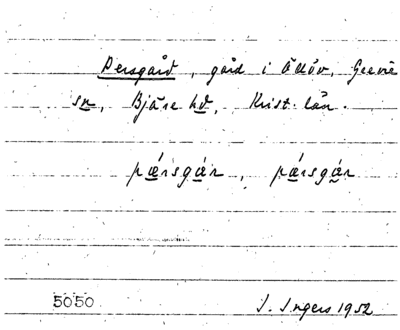 Persgård, gård i Ällöv, Grevie
sn, Bjäre hd, Krist. län.
pǽrisgår, pársgår
5050 I. Ingers 1952